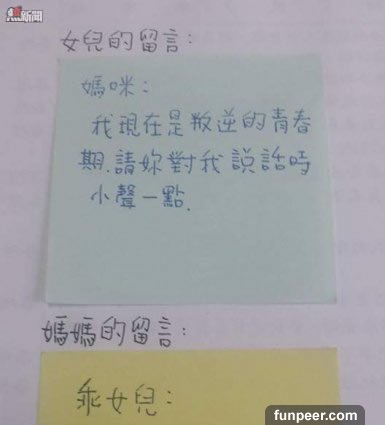 焦新聞
女兒的留言：
媽咪：
我現在是叛逆的青春
期.請妳對我說話時
小聲一點.
媽媽的留言：
乖女兒：
funpeer.com